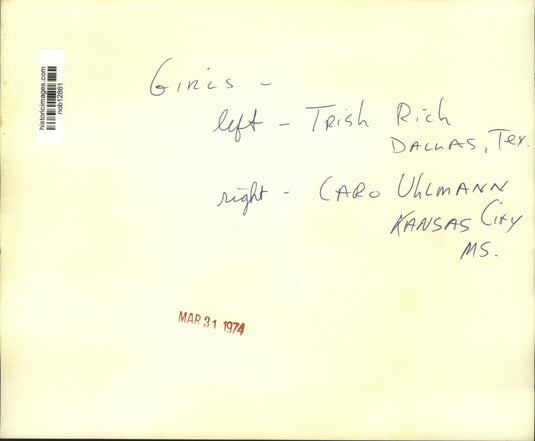 historicimages.com
ncb12861
Girls -
left - Trish Rich
Dallas, Tex.
right - Caro Uhlmann
Kansas City
MS.
MAR 31 1974